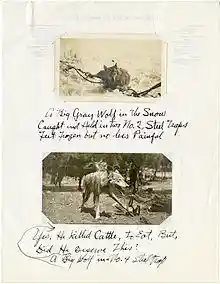 A Big Gray Wolf in the Snow
Caught and Held in two No. 2, Steel Traps
Feet Frozen but no less Painful
Yes, He Killed Cattle, to Eat, But,
Did He Deserve This?
A Big Wolf in No. 4 Steel Trap